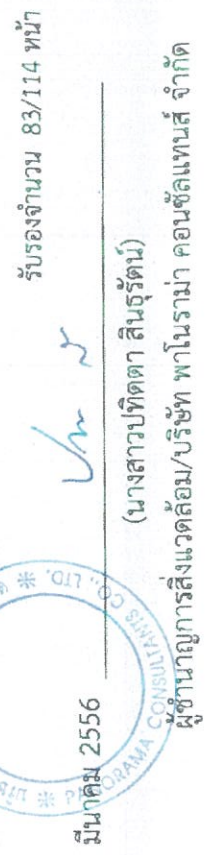 รับรองจำนวน 83/114 หน้า
มีนาคม 2556
(นางสาวปทิตตา สินธุรัตน์)
ผู้ชำนาญการสิ่งแวดล้อม/บริษัท พาโนราม่า คอนซัลแทนส์ จำกัด
PANORAMA CONSULTANTS CO., LTD.